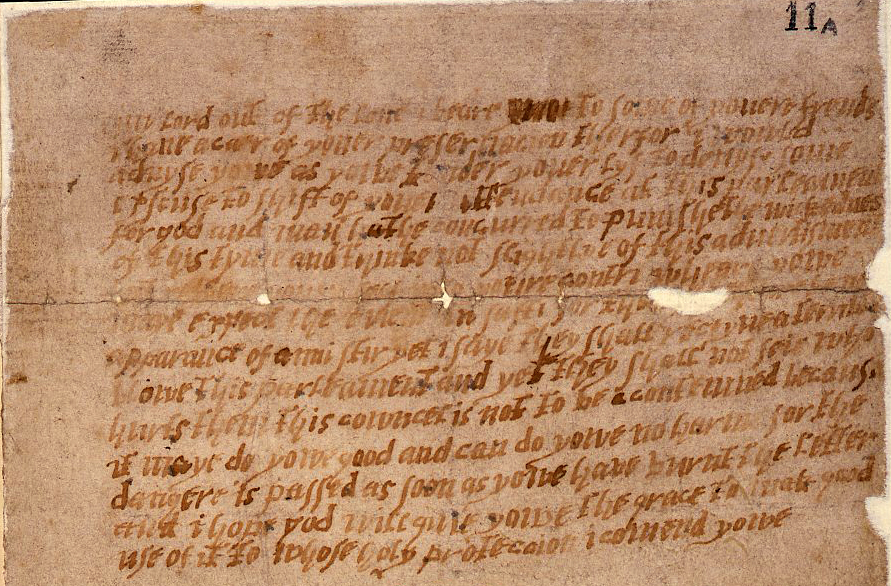 11A
my lord out of the love i beare to some of youere frends
i have a caer of youer preservacion therfor i would
advyse yowe as yowe tender youer lyf to devyse some
excuse to shift of youer attendance at this parleament
for god and man hathe concurred to punishe the wickednes
of this tyme and thinke not slightlye of this advertisment
youre contri wheare yowe
maye expect the event in safti for thowghe
apparance of anni stir yet i saye they shall receyve a terrible
blowe this parleament and yet they shall not seie who
hurts them this cowncel is not to be a contemned because
it maye do yowe good and can do yowe no harme for the
dangere is passed as soon as yowe have burnt the letter
and i hope god will give yowe the grace to mak good
use of it to whose holy proteccion i comend yowe